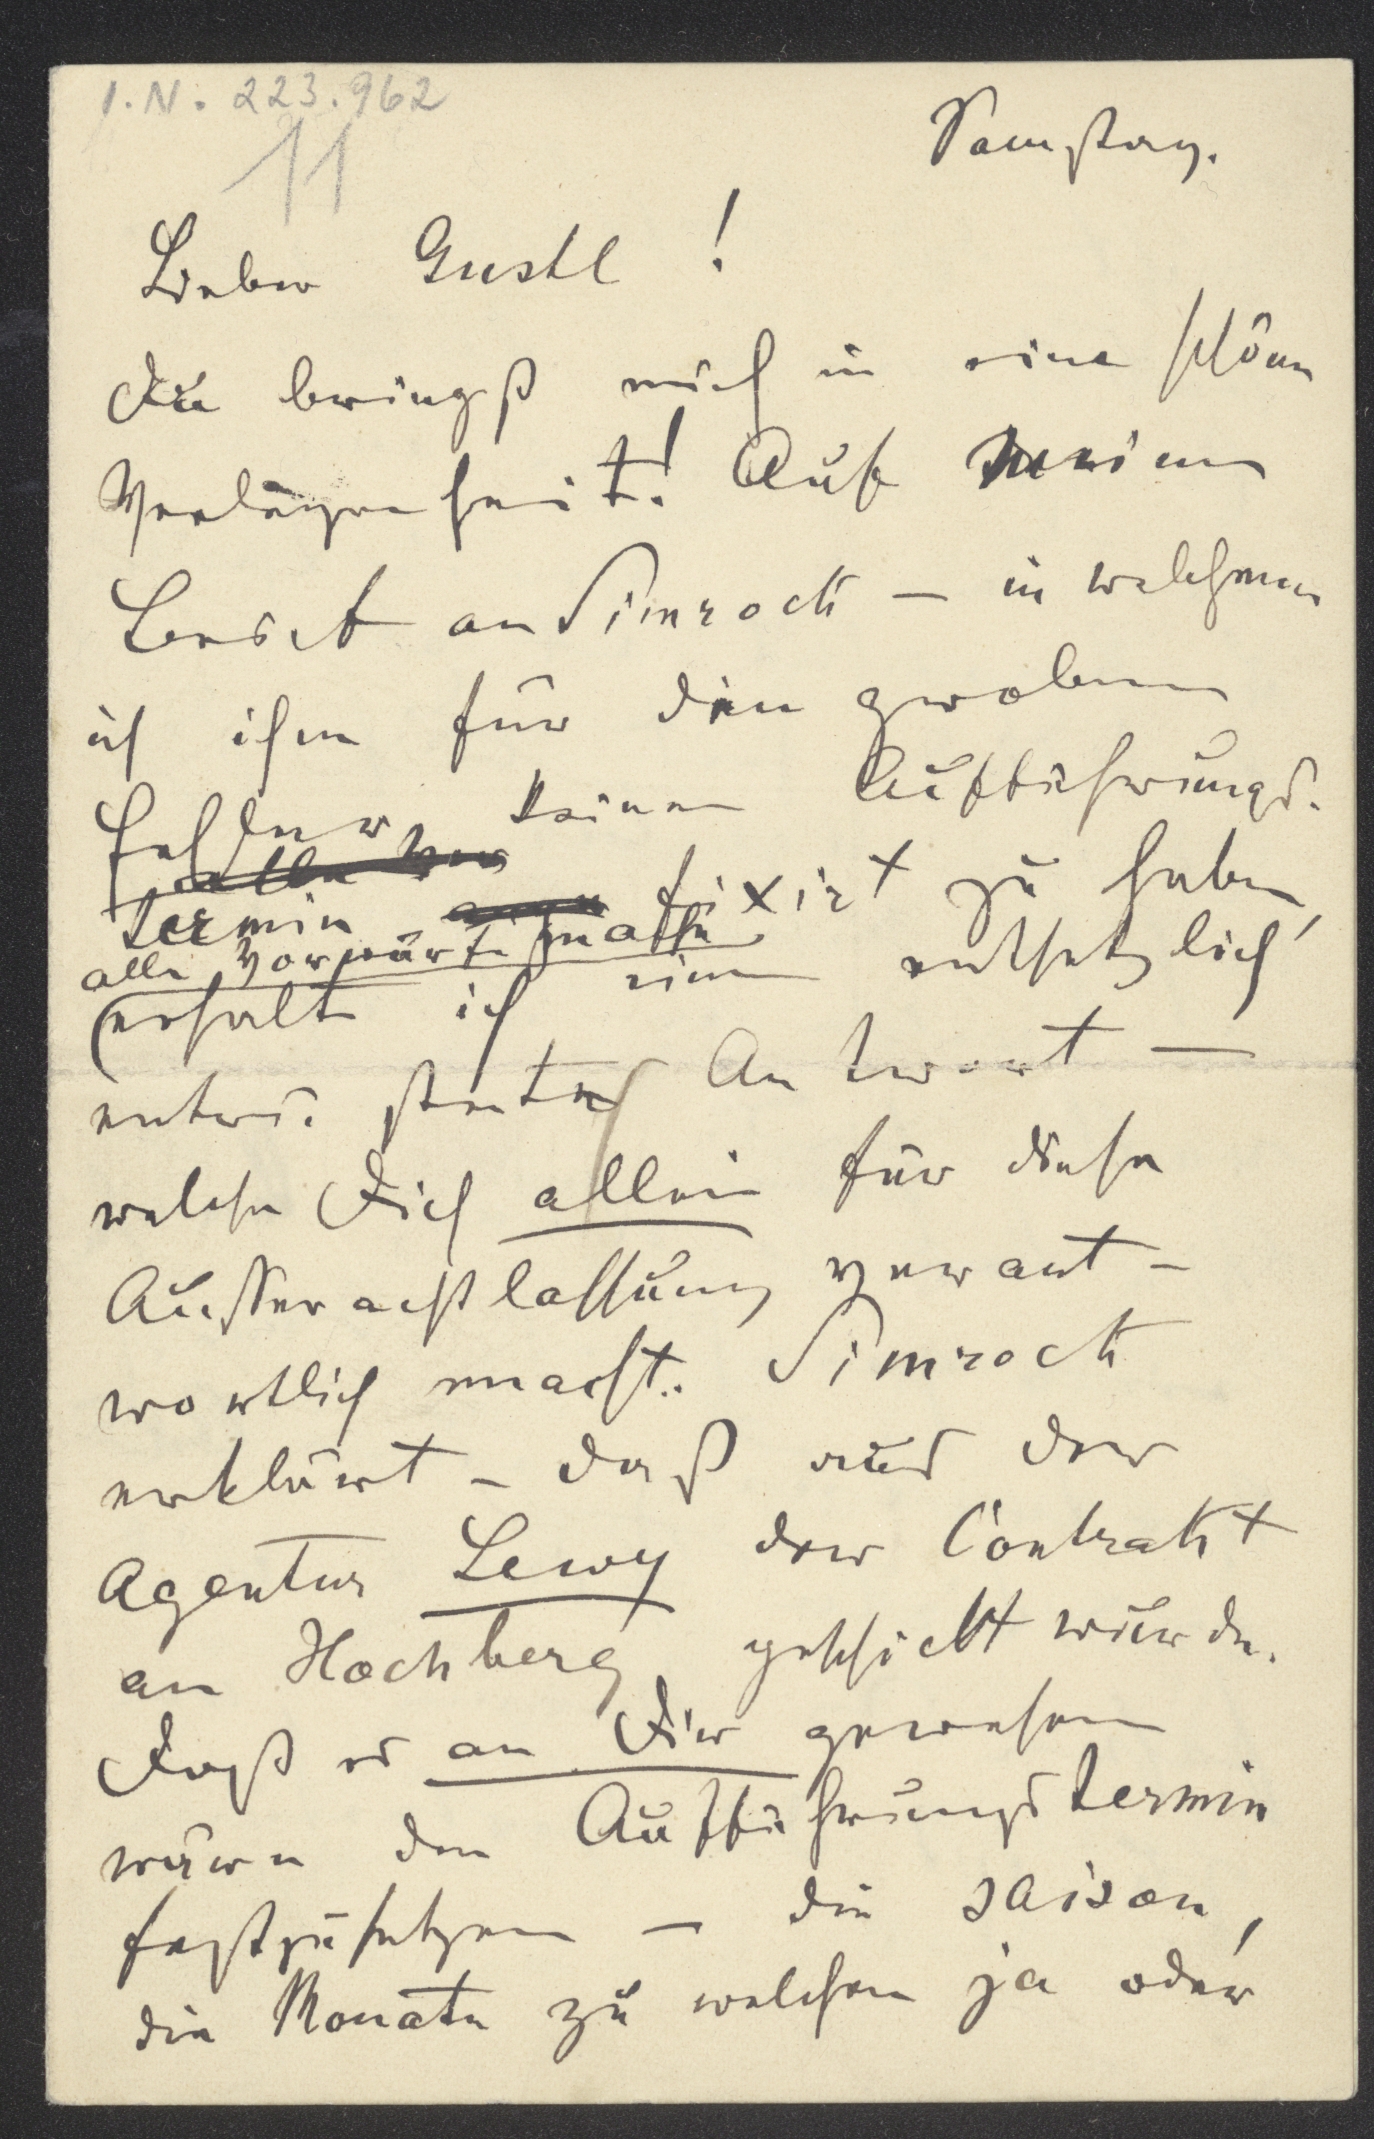 I.N. 223.962
11
Samstag.
Lieber Gustl!
Du bringst mich in eine schöne
Verlegenheit! Auf meinen
Brief an Simrock – in welchem
ich ihm für den groben
Fehler, keinen Aufführungs-
termin fixirt zu haben,
alle Vorwürfe machte
erhalte ich eine entsetzlich
Antwort –
welche Dich allein für diese
Ausserachtlassung verant-
wortlich macht. Simrock
erklärt – daß aus der
Agentur Lewy der Contrakt
an Hochberg geschickt wurde.
Daß es an Dir gewesen
wäre den Aufführungstermin
festzusetzen – die Saison,
die Monate zu welchen ja oder